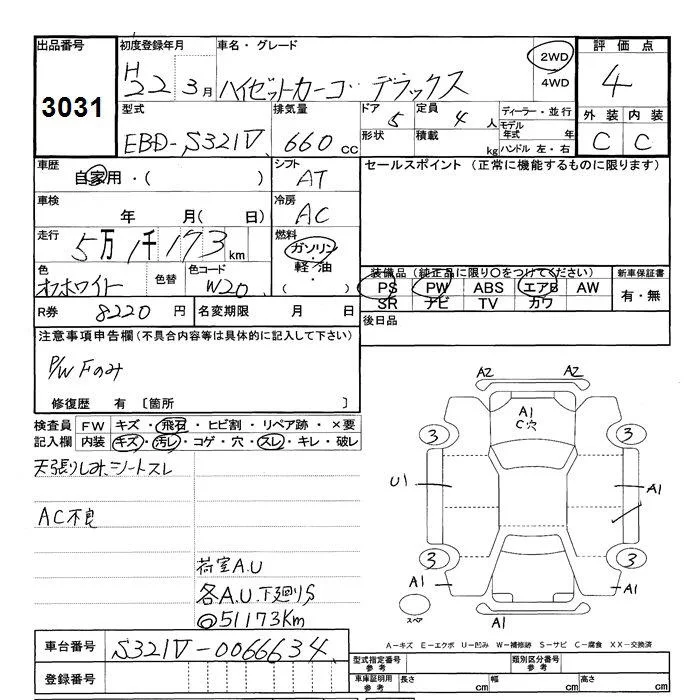 出品番号 初度登録年月 車名・グレード 評価点
3031 H22 3月 ハイゼットカーゴ デラックス 2WD 4WD 4
型式 排気量 ドア 定員 ディーラー・並行 外装 内装
EBD-S321V 660cc 5 4人 モデル年式 年 C C
形状 積載 kg ハンドル 左・右
車歴 シフト セールスポイント (正常に機能するものに限ります)
自家用・( ) AT
車検 冷房
年 月( 日) AC
走行 燃料
5万1千173km ガソリン・軽・油・( )
色 色替 色コード 装備品 (純正品に限り〇をつけてください) 新車保証書
オフホワイト W20 PS PW ABS エアB AW 有・無
SR ナビ TV カワ
R券 8220円 名変期限 月 日 後日品
注意事項申告欄(不具合内容等は具体的に記入して下さい)
P/W Fのみ
修復歴 有 〔箇所 〕
検査員 FW キズ・飛石・ヒビ割・リペア跡・×要
記入欄 内装 キズ・汚レ・コゲ・穴・スレ・キレ・破レ
天張りしみ、シートスレ
AC不良
荷室A.U
各A.U.下廻りS
@51173Km
A2 A2
A1
C穴
3 3
U1 A1
3 3
A1 A1
スペア A1
A-キズ E-エクボ U-凹み W-補修跡 S-サビ C-腐食 XX-交換済
車台番号 S321V-0066634
登録番号
型式指定番号 参考 類別区分番号 参考
車庫証明用 参考 長さ cm 幅 cm 高さ cm